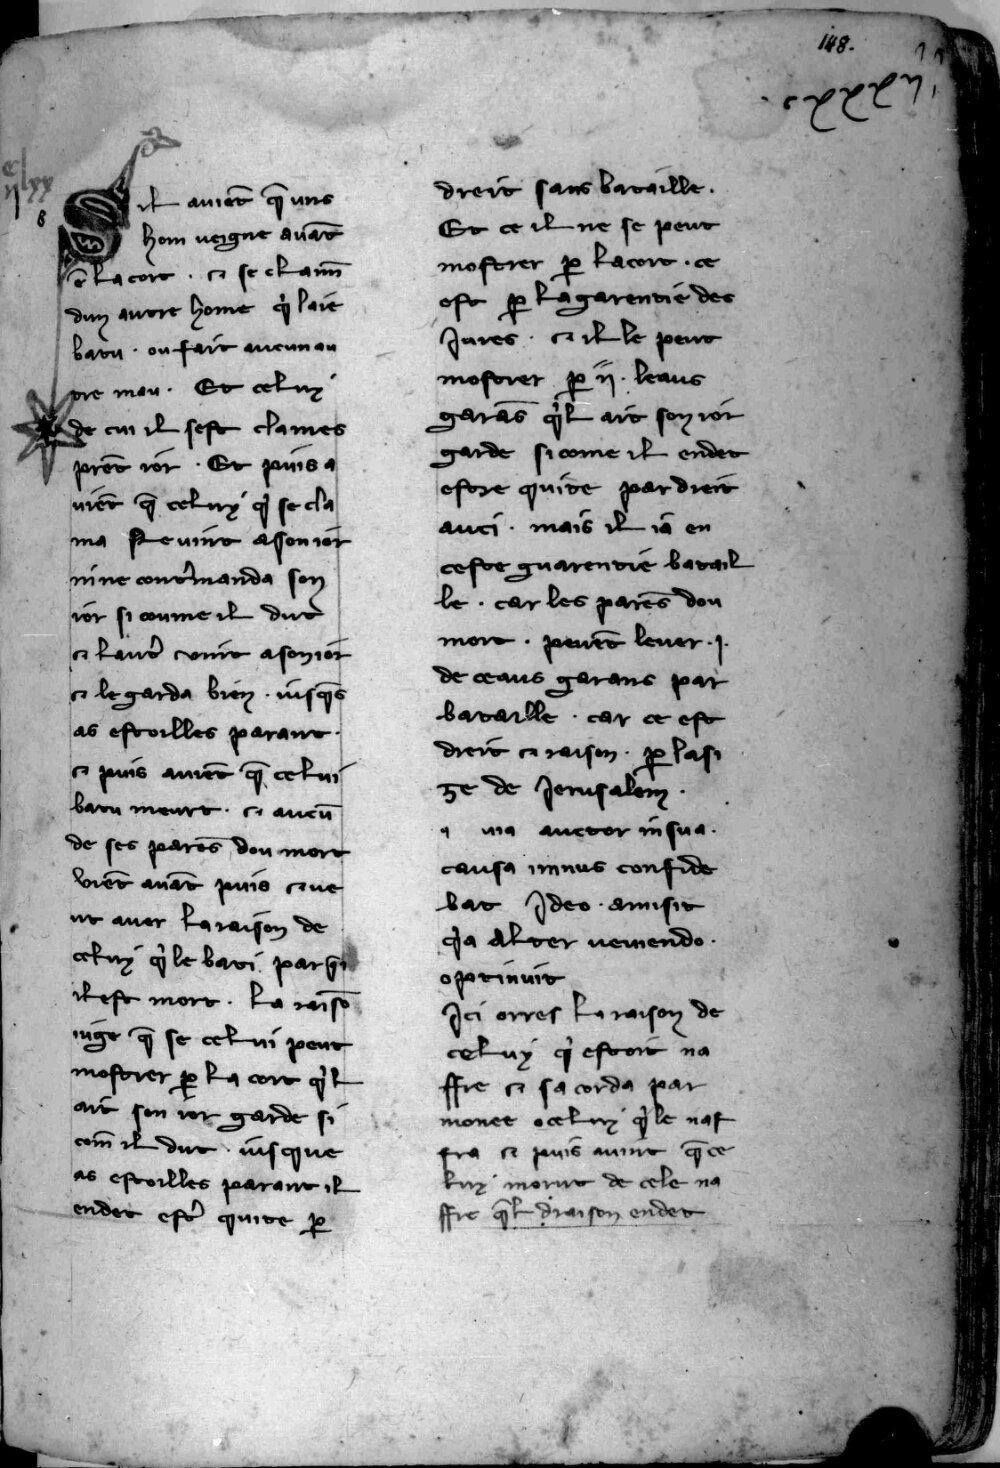 148.
cxxxxii
clxx
ii
8
Sil auiẽt q̃ uns
hom ueigne auãt
ẽ la cort . ⁊ se claim̃
dun autre home q̇ laie
batu . ou fait aucun au
tre mau . Et celuy
de cui il sest clames
prẽt ior . Et puis a
uiẽt q̃ celuy q̇ se cla
ma ne uint a son ior
ni ne contͥmanda son
ior si coume il dut
⁊ lautͥ uint a son ior
⁊ le garda bien . iusq̃s
as estoilles parant .
⁊ puis auiẽt q̃ celui
batu meurt . ⁊ aucũ
de ses parẽs dou mort
viẽt auãt puis ⁊ ue
ut auer la raison de
celuy q̇ le bati par q̇i
il est mort . la raisõ
iuge q̃ se celui peut
mostrer ꝑ la cort q̇l
ait son ior garde si
com̃ il dut iusque
as estoilles parant il
endet estͥ quite ꝑ
dreit sans bataille .
Et ce il ne se peut
mostrer ꝑ la cort . ce
est ꝑ la garentie des
Jures . ⁊ il le peut
mostrer ꝑ ii . leaus
garãs q̇l ait son ior
garde si come il endet
estre quite par dreit
auci . mais il ia en
ceste guarentie batail
le . car les parẽs dou
mort . peuẽt leuer . j .
de ceaus garans par
bataille . car ce est
dreit ⁊ raison . ꝑ lasi
ze de Jerusalem .
q uia auctor in sua .
causa minus confide
bat Ideo . amisit
q̇a alter ueniendo .
optinuit
Ici orres la raison de
celuy q̇ estoit na
ffre ⁊ sa corda par
monee o celuy q̇ le naf
fra ⁊ puis auint q̃ ce
luy morut de cele na
ffre q̃l draison endet